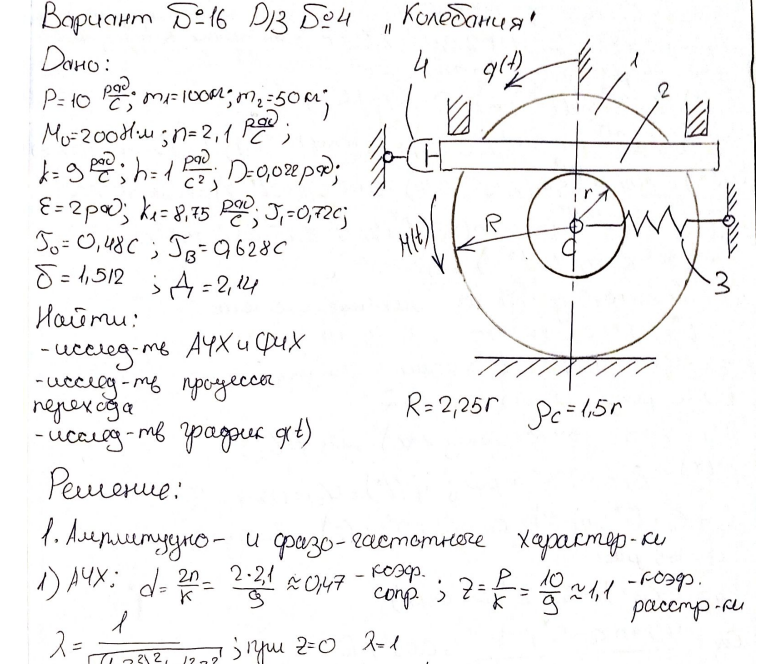 Вариант №16 D/З №4 „Колебания"
Дано:
p=10 рад/с; m1=100кг; m2=50кг;
M0=200Нм; n=2,1 рад/с;
k=9 рад/с; h=1 рад/с²; D=0,022рад;
ε=2рад; k1=8,75 рад/с; T1=0,72с;
T0=0,48с; TB=0,628с
δ=1,512; Д=2,14
Найти:
-исслед-ть АЧХ и ФЧХ
-исслед-ть процессы
перехода
-исслед-ть график q(t)
4
q(t)
1
2
r
R
C
M(t)
3
R=2,25r ρc=1,5r
Решение:
1. Амплитудно- и фазо-частотные характер-ки
1) АЧХ; d=2n/k=2·2,1/9≈0,47 -коэф. сопр.; z=p/k=10/9≈1,1 -коэф. расстр-ки
λ=1/ ; при z=0 λ=1